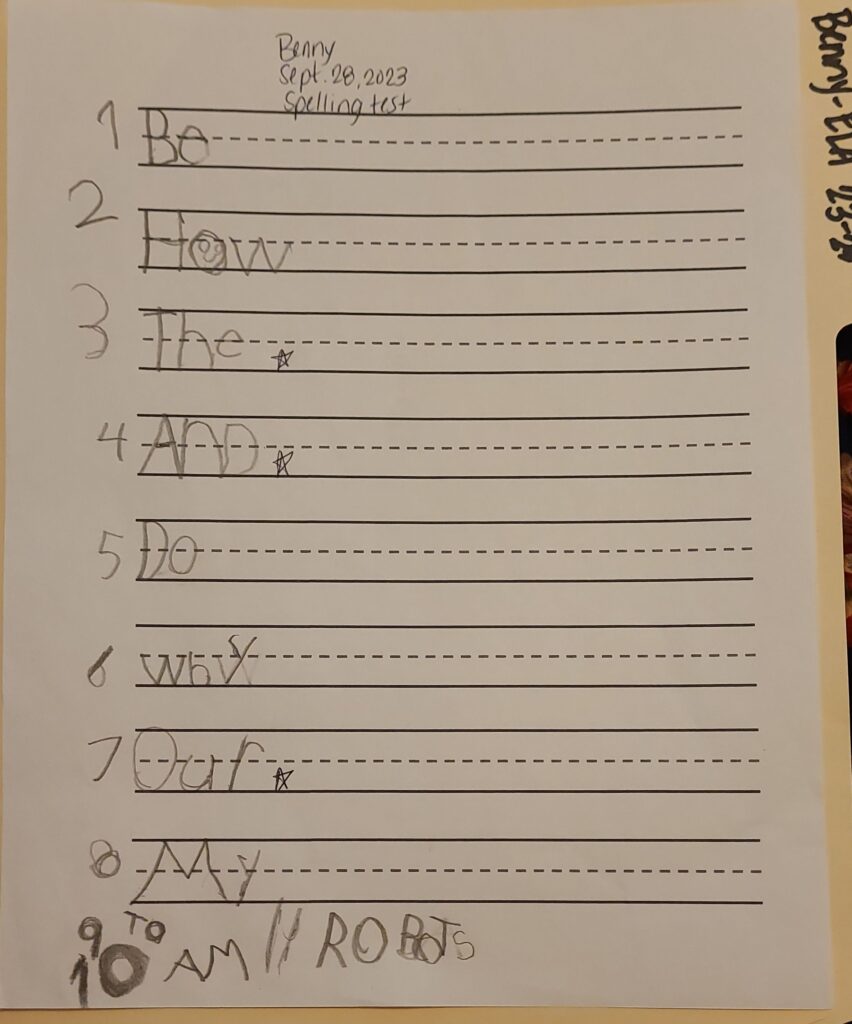 Benny
Sept. 28, 2023
Spelling test
1 Be
2 How
3 The
4 AnD
5 Do
6 why
7 Our
8 My
9 TO
10 AM 11 ROBOTS
Benny - ELA 23-24